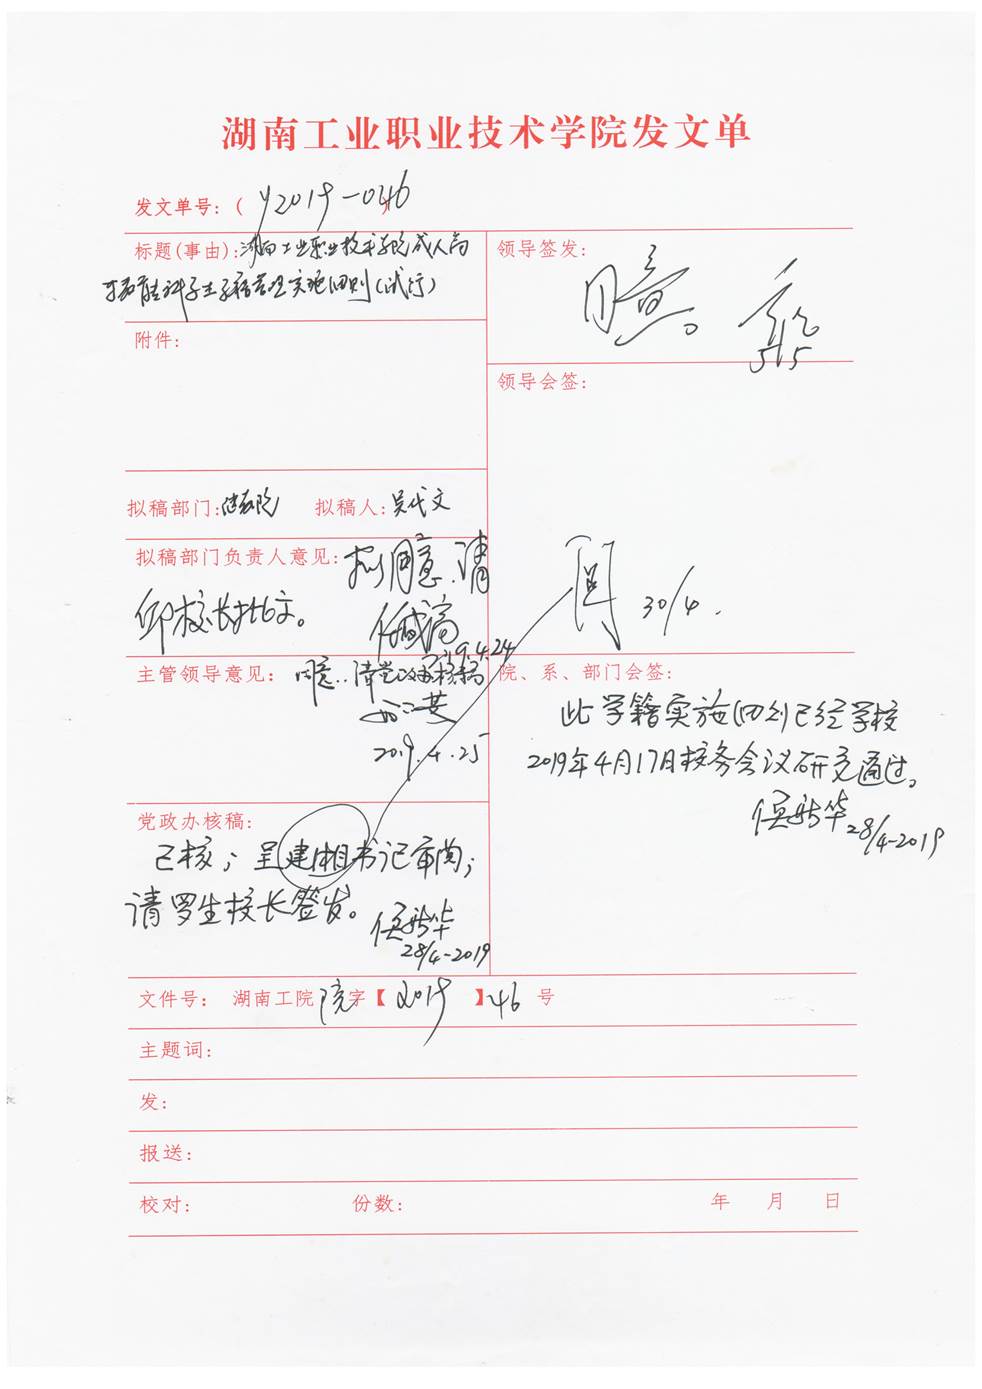 湖南工业职业技术学院发文单
发文单号：( y2019-046
标题(事由)：湖南工业职业技术学院成人高
等教育专科学生学籍管理实施细则(试行)
领导签发：
同意。
5/5
附件：
领导会签：
拟稿部门：继教院 拟稿人：吴代文
拟稿部门负责人意见：拟同意.请
邱校长批文。
19.4.24
阅 30/4.
主管领导意见：同意..请党政办核稿
2019.4.25
院、系、部门会签：
此学籍实施细则已经学校
2019年4月17日校务会议研究通过。
侯新华 28/4-2019
党政办核稿：
已核；呈建湘书记审阅；
请罗生校长签发。
侯新华
28/4-2019
文件号： 湖南工院 院 字【 2019 】46 号
主题词：
发：
报送：
校对： 份数： 年 月 日